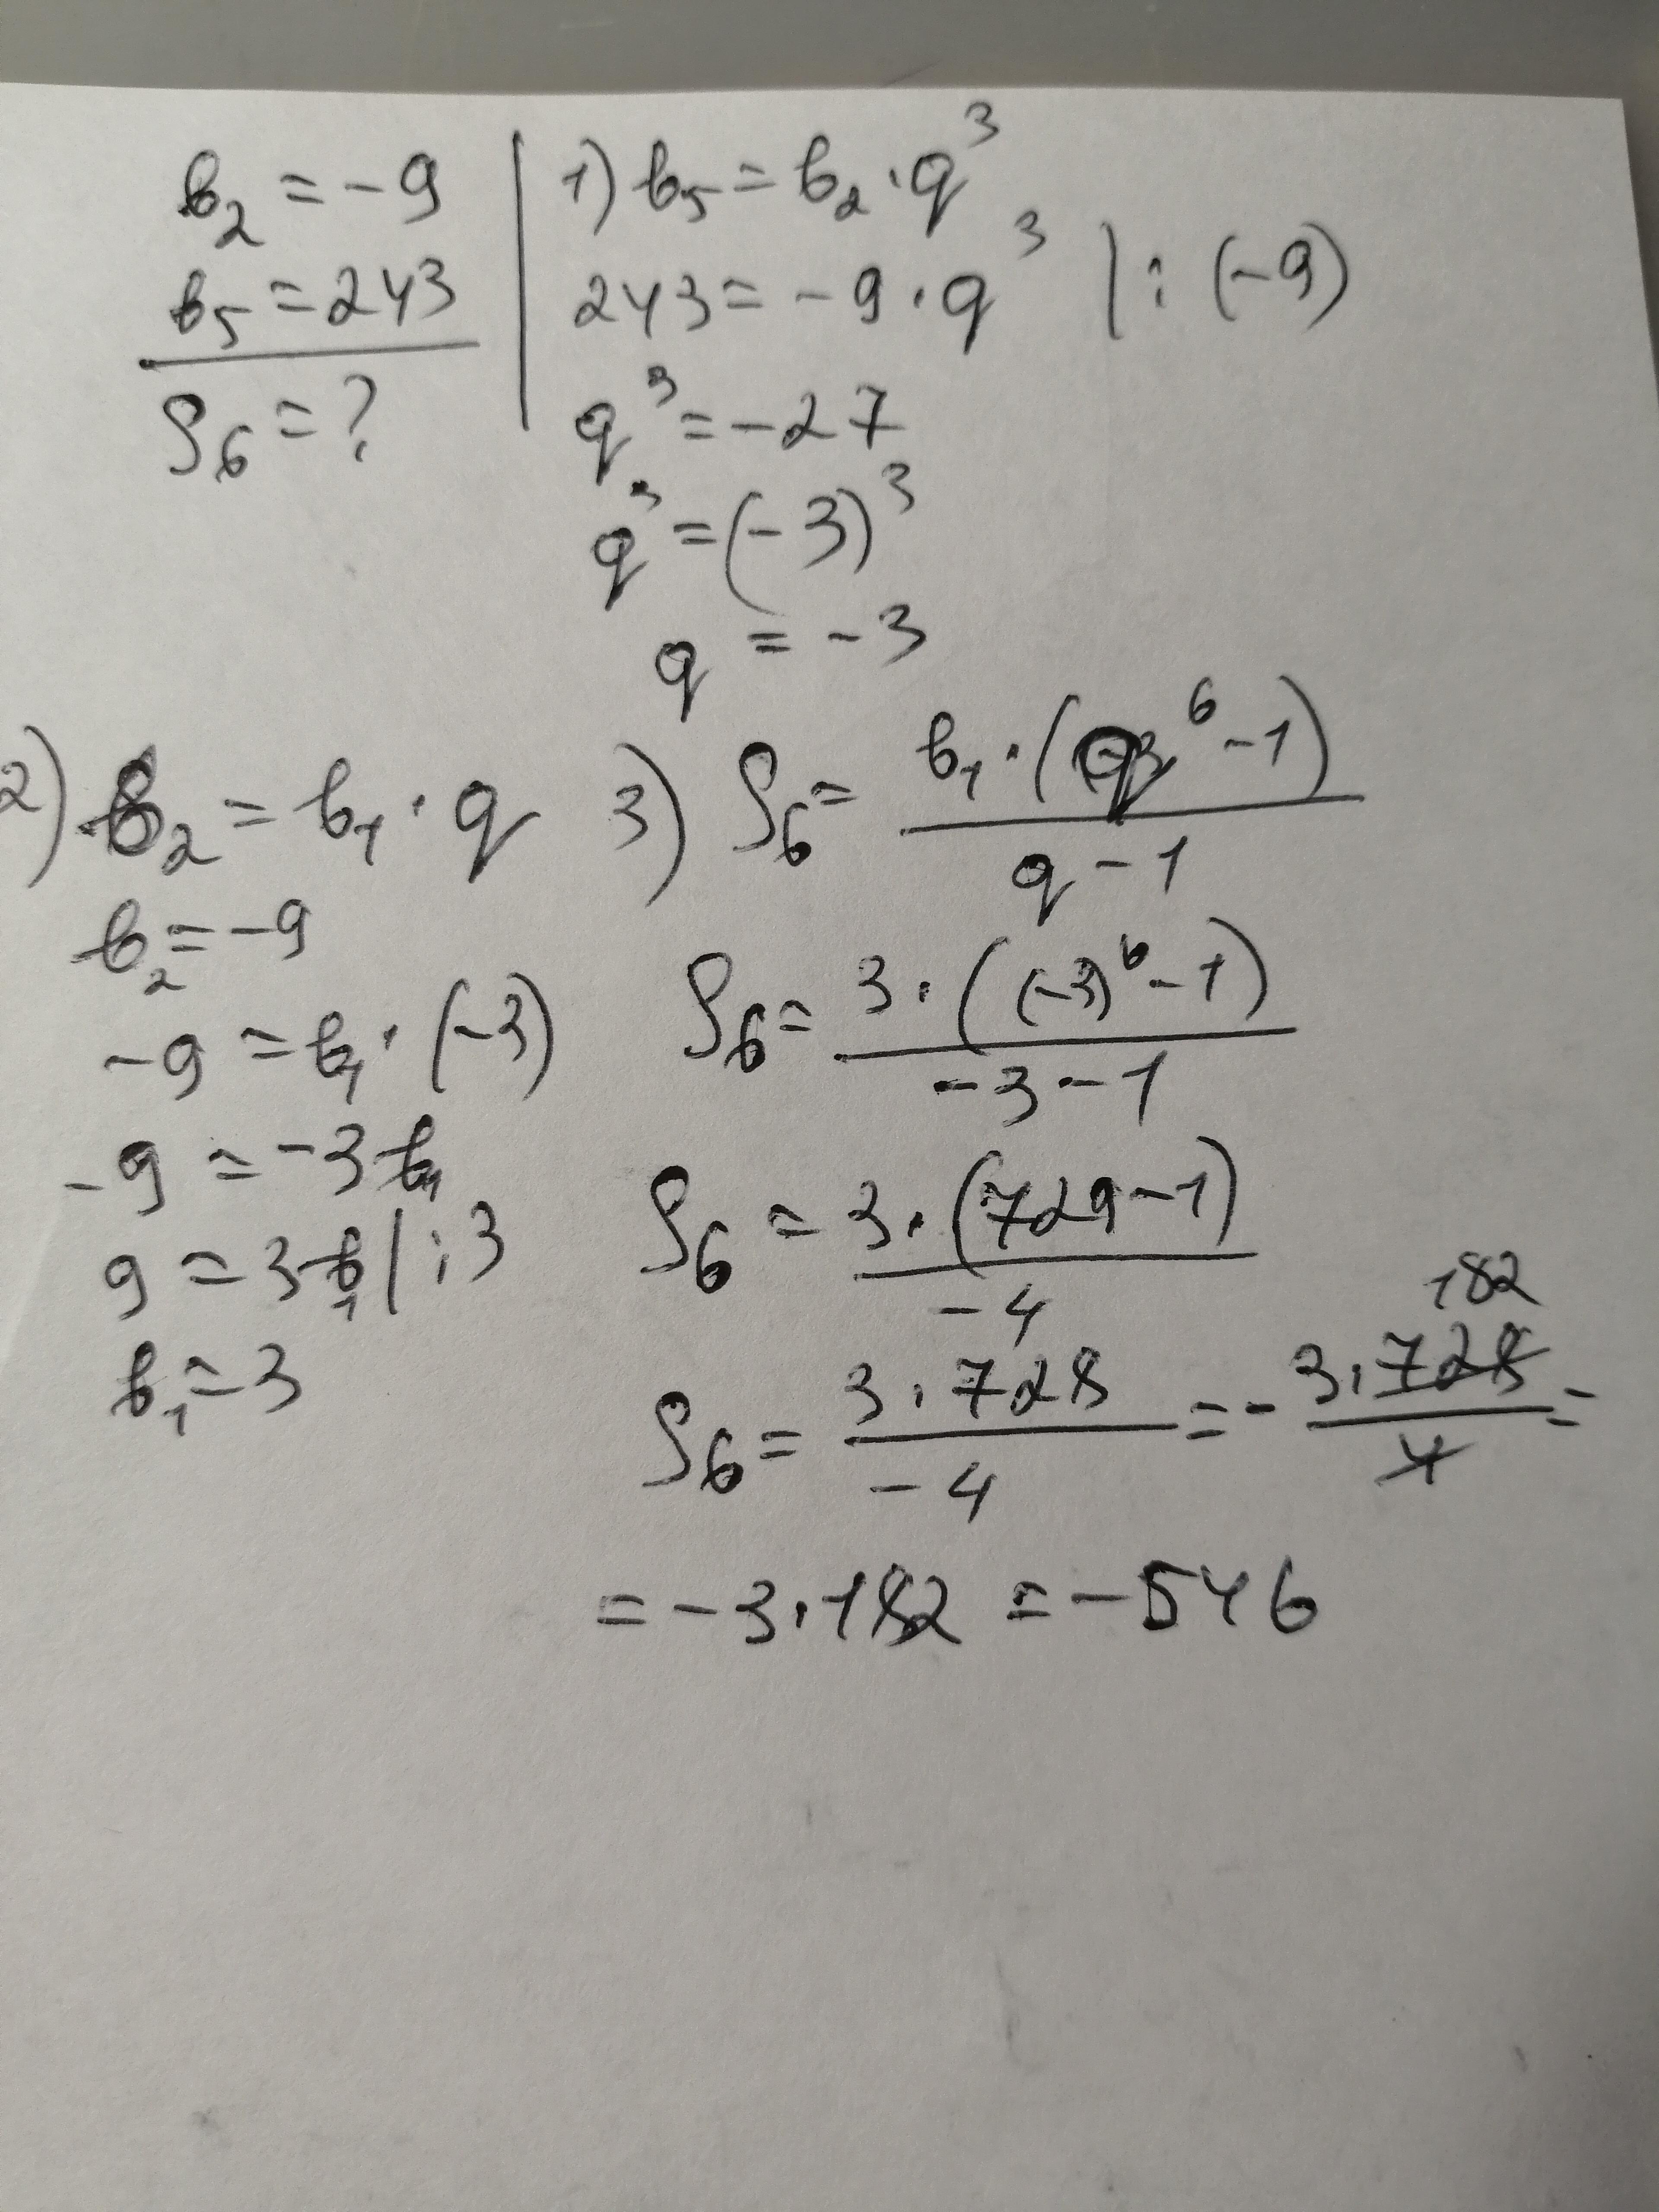 b₂ = -9
b₅ = 243
S₆ = ?
1) b₅ = b₂ · q³
243 = -9 · q³ | : (-9)
q³ = -27
q³ = (-3)³
q = -3
2) b₂ = b₁ · q
b₂ = -9
-9 = b₁ · (-3)
-9 = -3b₁
9 = 3b₁ | : 3
b₁ = 3
3) S₆ = b₁ · (q⁶ - 1) / q - 1
S₆ = 3 · ((-3)⁶ - 1) / -3 - 1
S₆ = 3 · (729 - 1) / -4
182
S₆ = 3 · 728 / -4 = - 3 · 728 / 4 =
= -3 · 182 = -546